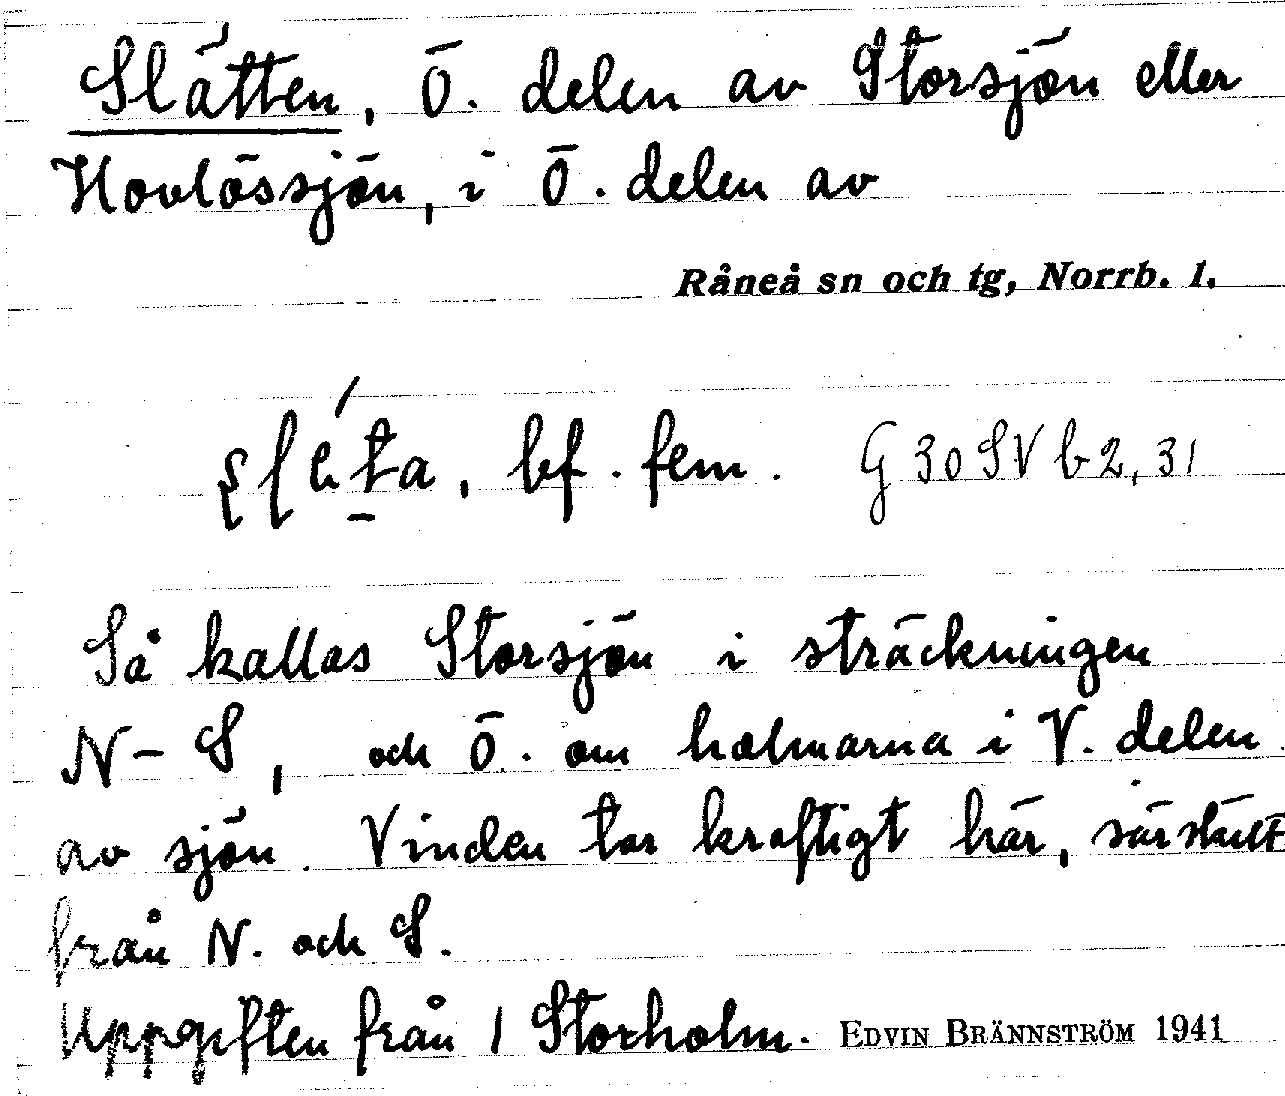 Slätten, Ö. delen av Storsjön eller
Hovlössjön, i Ö. delen av
Råneå sn och tg, Norrb. l.
bf. fem. G 30 SV b2, 31
Så kallas Storsjön i sträckningen
N–S, och Ö. om holmarna i V. delen
av sjön. Vinden tar kraftigt här, särskilt
från N. och S.
Uppgiften från 1 Storholm. EDVIN BRÄNNSTRÖM 1941